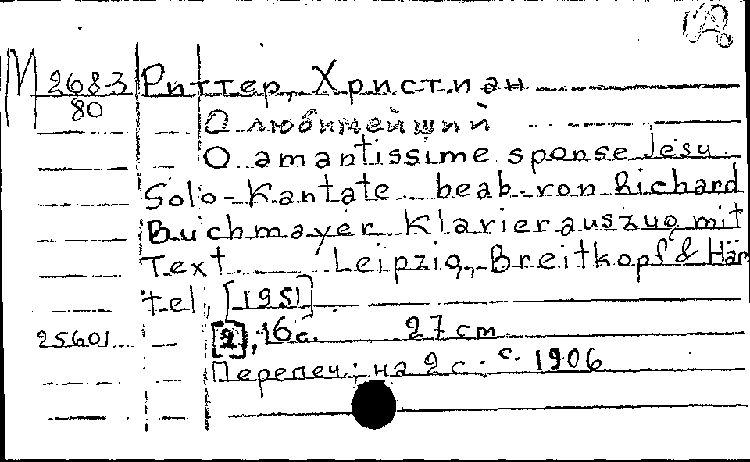 М 2683 Риттер, Христиан
80
О любимейший
O amantissime sponse Jesu.
Solo-Kantate bearb. von Richard
Buchmayer Klavierauszug mit
Text Leipzig, Breitkopf & Här
tel, [1951]
25601 [2], 16 с. 27 cm
Перепеч: на 2 с. с. 1906